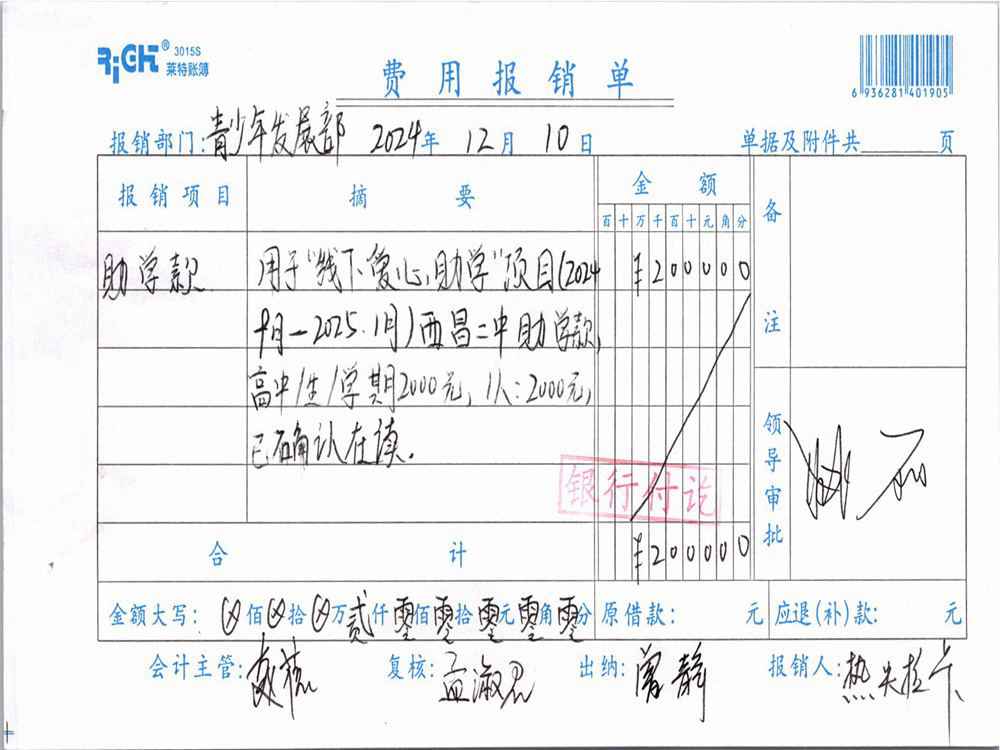 RiGHt® 3015S
莱特账簿
费用报销单
6 936281 401905
报销部门：青少年发展部 2024年 12月 10日 单据及附件共 页
报销项目 摘要 金额 备注
百 十 万 千 百 十 元 角 分
助学款 用于“线下爱心助学”项目(2024 ¥200000
9月—2025.1月)西昌二中助学款,
高中/生/学期2000元, 1人:2000元,
已确认在读.
银行付讫
领导审批
合计 ¥200000
金额大写： ⊗佰⊗拾⊗万贰仟零佰零拾零元零角零分 原借款： 元 应退(补)款： 元
会计主管: 复核: 孟淑君 出纳: 曾静 报销人: 热夹拉卡